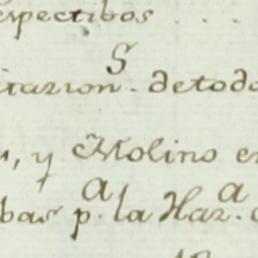 espectibos . . .
S
itazion. de todo
, y Molino en
bas p.a la Haz.a